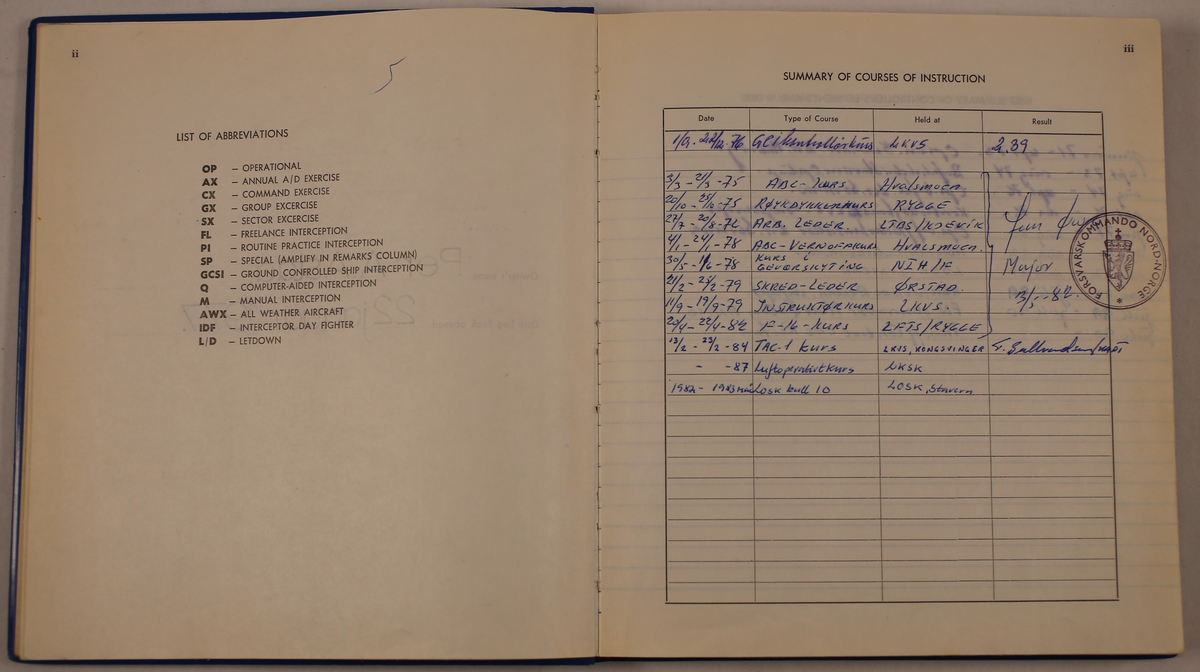 ii
5
LIST OF ABBREVIATIONS
OP – OPERATIONAL
AX – ANNUAL A/D EXERCISE
CX – COMMAND EXERCISE
GX – GROUP EXCERCISE
SX – SECTOR EXCERCISE
FL – FREELANCE INTERCEPTION
PI – ROUTINE PRACTICE INTERCEPTION
SP – SPECIAL (AMPLIFY IN REMARKS COLUMN)
GCSI – GROUND CONTROLLED SHIP INTERCEPTION
Q – COMPUTER-AIDED INTERCEPTION
M – MANUAL INTERCEPTION
AWX – ALL WEATHER AIRCRAFT
IDF – INTERCEPTOR DAY FIGHTER
L/D – LETDOWN
iii
SUMMARY OF COURSES OF INSTRUCTION
Date Type of Course Held at Result
LKVS 2,39
3/3 - 21/3 -75 ABC-KURS Hvalsmoen
20/10 - 25/10 -75 RØYKDYKKERKURS RYGGE
ARB. LEDER LTAS/KJEVIK
4/1 - 24/1 -78 ABC-VERNOFFKURS HVALSMOEN
30/5 - 1/6 -78 KURS I GEVÆRSKYTING NIH/F Major
SKRED-LEDER ØRSTAD
11/9 - 19/9 -79 INSTRUKTØRKURS LKVS.
F-16-KURS LFTS/RYGGE
13/2 - 23/2 -84 TAC-1 kurs LKVS, KONGSVINGER
- -87 Luftoperativtkurs LKSK
1982 - 1983 Losk kull 10 LOSK, Stavern
FORSVARSKOMMANDO NORD-NORGE